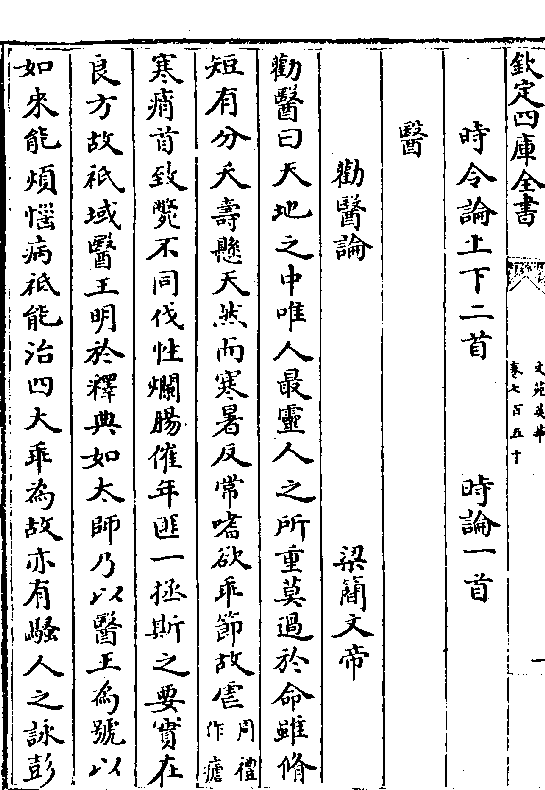 欽定四庫全書
文苑英華
卷七百五十
一
時令論上下二首 時論一首
醫
勸醫論 梁簡文帝
勸醫曰天地之中唯人最靈人之所重莫過於命雖脩
短有分夭壽懸天然而寒暑反常嗜欲乖節故虐周禮作瘧
寒痟首致斃不同伐性爛腸催年匪一拯斯之要實在
良方故祇域醫王明於釋典如大師乃以醫王為號以
如來能煩惱病祗能治四大乖為故亦有騷人之詠彭